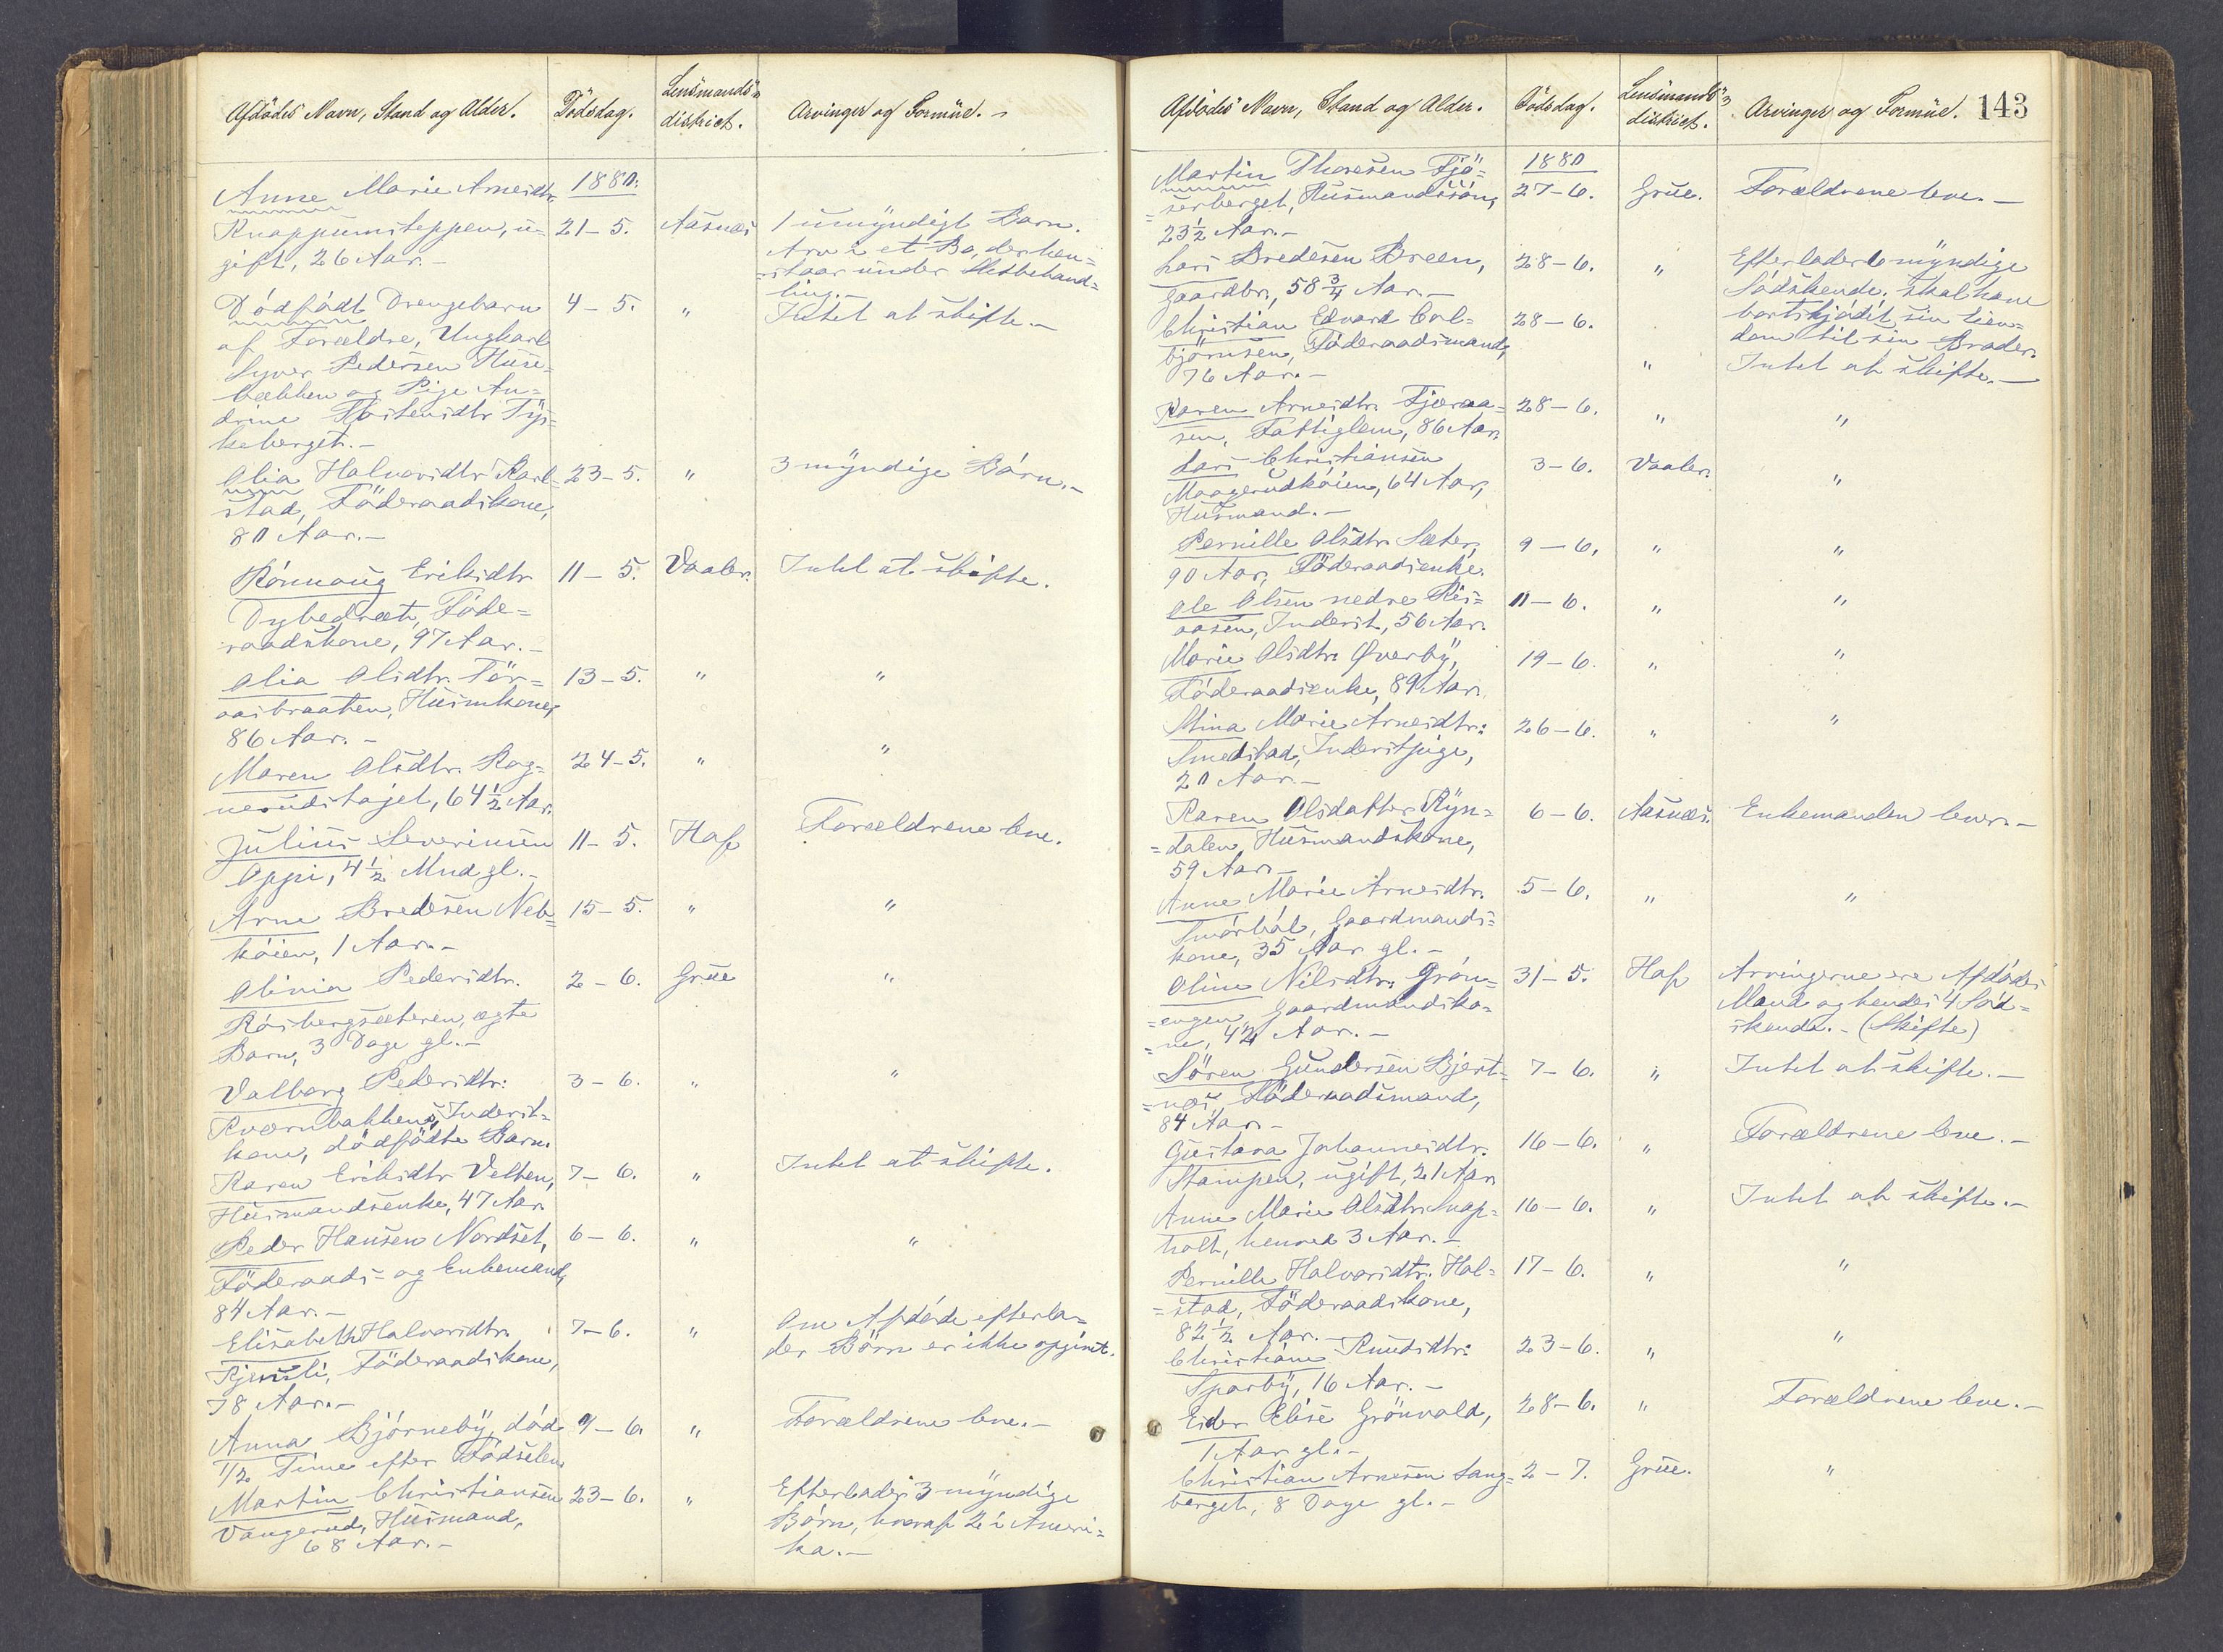 Afdødes Navn, Stand og Alder.
Dödsdag.
Lensmands-
district.
Arvinger og Formue.
Anne Marie Arnesdtr.
1880.
Knappumsteppen, u-
gift, 26 Aar.-
21-5.
Aasnæs
1 umyndigt Barn.
Arv i et Bo, der hen-
staar under Skiftebehand-
ling.-
Dödfödt Drengebarn
4-5.
"
Intet at skifte.-
af Forældre, Ungkarl
Syver Pedersen Huse-
bækken og Pige An-
drine Tostensdtr Tys-
keberget.-
Olia Halvorsdtr Karl-
stad, Föderaadskone,
80 Aar.-
23-5.
"
3 myndige Börn.-
Rönnaug Eriksdtr
Dybedræt, Föde-
raadskone, 97 Aar.-
11-5.
Vaaler.
Intet at skifte.
Olia Olsdtr. Tör-
aasbraaten, Husmkone,
86 Aar.-
13-5.
"
"
Maren Olsdtr. Rog-
nerudstajet, 64½ Aar.
24-5.
"
"
Julius Severinsen
Oppi, 4½ Mnd gl.-
11-5.
Hof
Forældrene leve.
Arne Bredesen Neb-
köien, 1 Aar.-
15-5.
"
"
Olinia Pedersdtr.
Rösbergsæteren, ægte
Barn, 3 Dage gl.-
2-6.
Grue
"
Valborg Pedersdtr.
Kværnbakkens, Inderst-
kone, dödfödte Barn.
3-6.
"
"
Karen Eriksdtr Velten,
Husmandsenke, 47 Aar
7-6.
"
Intet at skifte.
Peder Hansen Nordset,
Föderaads- og Enkemand,
84 Aar.-
6-6.
"
"
Elisabeth Halvorsdtr.
Kjensli, Föderaadskone,
78 Aar.-
7-6.
"
Om Afdöde efterla-
der Börn er ikke opgivet.
Anna Björneby, död
1/2 Time efter Födselen
9-6.
"
Forældrene leve.-
Martin Christiansen
Vangerud, Husmand,
68 Aar.-
23-6.
"
Efterlader 3 myndige
Börn, hvoraf 2 i Ameri-
ka.-
Afdödes Navn, Stand og Alder.
Dödsdag.
Lensmands-
district.
Arvinger og Formue.
143
Martin Thoresen Tjö-
serberget, Husmandssön,
23½ Aar.-
1880
27-6.
Grue.
Forældrene leve.-
Lars Bredesen Breen,
Gaardbr., 58¾ Aar.-
28-6.
"
Efterlader 6 myndige
Södskende. Skal have
bortskjödet sin Eien-
dom til sin Broder.
Christian Edvard Col-
björnsen, Föderaadsmand,
76 Aar.-
28-6.
"
Intet at skifte.-
Karen Arnesdtr. Tjæraa-
sen, Fattiglem, 86 Aar.
28-6.
"
"
Lars Christiansen
Maagerudköien, 64 Aar,
Husmand.-
3-6.
Vaaler.
"
Pernille Olsdtr Sæter,
90 Aar, Föderaadsenke.
9-6.
"
"
Ole Olsen nedre Ris-
aasen, Inderst, 56 Aar.
11-6.
"
"
Marie Olsdtr Øverby,
Föderaadsenke, 89 Aar.
19-6.
"
"
Mina Marie Arnesdtr.
Smedstad, Inderstpige,
20 Aar.-
26-6.
"
"
Karen Olsdatter Ryn-
dalen, Husmandskone,
59 Aar.-
6-6.
Aasnæs.
Enkemanden lever.-
Anne Marie Arnesdtr.
Smörböl, Gaardmands-
kone, 35 Aar gl.-
5-6.
"
"
Oline Nilsdtr. Grön-
engen, Gaardmandsko-
ne, 42 Aar.-
31-5.
Hof
Arvingerne ere Afdödes
Mand og hendes 4 Söd-
skende.- (Skifte)
Sören Gundersen Bjert-
næs, Föderaadsmand,
84 Aar.-
7-6.
"
Intet at skifte.-
Gustava Johannesdtr.
Stampen, ugift, 21 Aar
16-6.
"
Forældrene leve.-
Anne Marie Olsdtr. Snap-
holt, henved 3 Aar.-
16-6.
"
Intet at skifte.-
Pernille Halvorsdtr. Hal-
stad, Föderaadskone,
82½ Aar.-
17-6.
"
"
Christiane Knudsdtr.
Sparby, 16 Aar.-
23-6.
"
"
Eider Elise Grönvold,
1 Aar gl.-
28-6.
"
Forældrene leve.-
Christian Arnesen Lang-
berget, 8 Dage gl.-
2-7.
Grue.
"